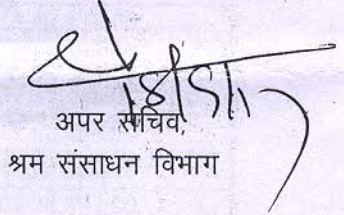 अपर सचिव,
श्रम संसाधन विभाग